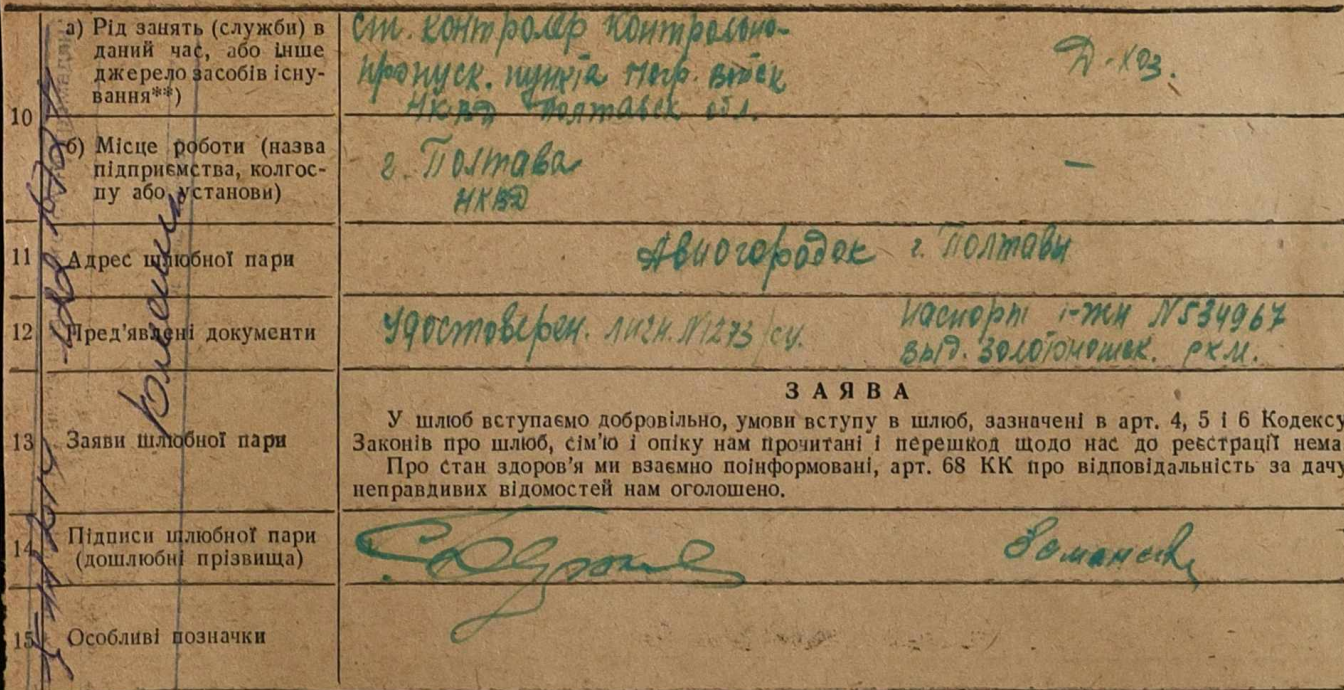 10
а) Рід занять (служби) в
даний час, або інше
джерело засобів існу-
вання**)
ст. контролер Контрольно-
пропуск. пункта погр. войск
НКВД Полтавск обл.
Д-хоз.
б) Місце роботи (назва
підприємства, колгос-
пу або установи)
г. Полтава
НКВД
—
11 Адрес шлюбної пари
Авиогородок г. Полтавы
12 Пред'явлені документи
Удостоверен. личн. №1273/су.
паспорт №534967
выд. Золотоношск. РКМ.
13 Заяви шлюбної пари
ЗАЯВА
У шлюб вступаємо добровільно, умови вступу в шлюб, зазначені в арт. 4, 5 і 6 Кодексу
Законів про шлюб, сім'ю і опіку нам прочитані і перешкод щодо нас до реєстрації нема
Про стан здоров'я ми взаємно поінформовані, арт. 68 КК про відповідальність за дачу
неправдивих відомостей нам оголошено.
14 Підписи шлюбної пари
(дошлюбні прізвища)
15 Особливі позначки